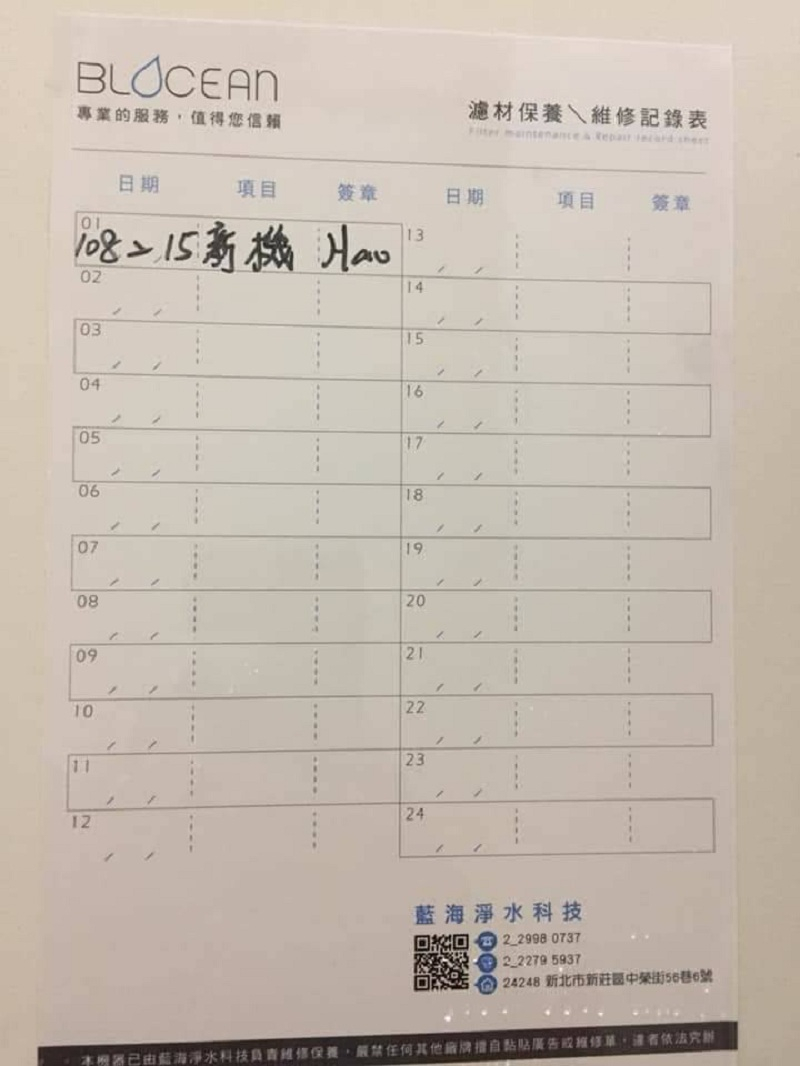 BLOCEAN
專業的服務，值得您信賴
濾材保養＼維修記錄表
Filter maintenance & Repair record sheet
日期 項目 簽章 日期 項目 簽章
01 108 2 15 新機 Hao
13
02
14
03
15
04
16
05
17
06
18
07
19
08
20
09
21
10
22
11
23
12
24
藍海淨水科技
2_2998 0737
2_2279 5937
24248 新北市新莊區中榮街56巷6號
本機器已由藍海淨水科技負責維修保養，嚴禁任何其他廠牌擅自黏貼廣告或維修單，違者依法究辦